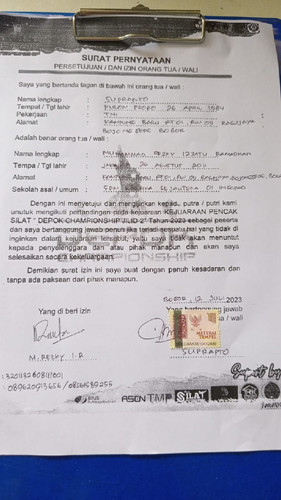 SURAT PERNYATAAN
PERSETUJUAN / DAN IZIN ORANG TUA / WALI
Saya yang bertanda tangan di bawah ini orang tua / wali :
Nama lengkap : SUPRAPTO
Tempat / Tgl lahir : 26 APRIL
Pekerjaan : TNI
Alamat : KAMPUNG BARU
BOJONG GEDE BOGOR
Adalah benar orang tua / wali :
Nama lengkap : MUHAMMAD REZKY
Tempa / Tgl lahir : 26 AGUSTUS 2011
Alamat
Sekolah asal / umum : SDN
Dengan ini menyetujui dan mengizinkan kepada putra / putri kami
unutuk mengikuti pertandingan pada kejuaraan "KEJUARAAN PENCAK
SILAT " DEPOK CHAMPIONSHIP JILID 2" Tahun 2023 sebagai peserta
dan saya bertanggung jawab penuh jika terjadi sesuatu yang tidak di
inginkan dalam kejuaraan tersebut, yaitu saya tidak akan menuntut
kepada penyelenggara dan atau pihak manapun dan akan saya
selesaikan secara kekeluargaan.
DEPOK
CHAMPIONSHIP
Demikian surat izin ini saya buat dengan penuh kesadaran dan
tanpa ada paksaan dari pihak manapun.
BOGOR, 12 JULI 2023
Yang di beri izin
Yang bertanggung jawab
a / wali
METERAI
TEMPEL
M. REZKY I.R
SUPRAPTO
Support by
SILAT